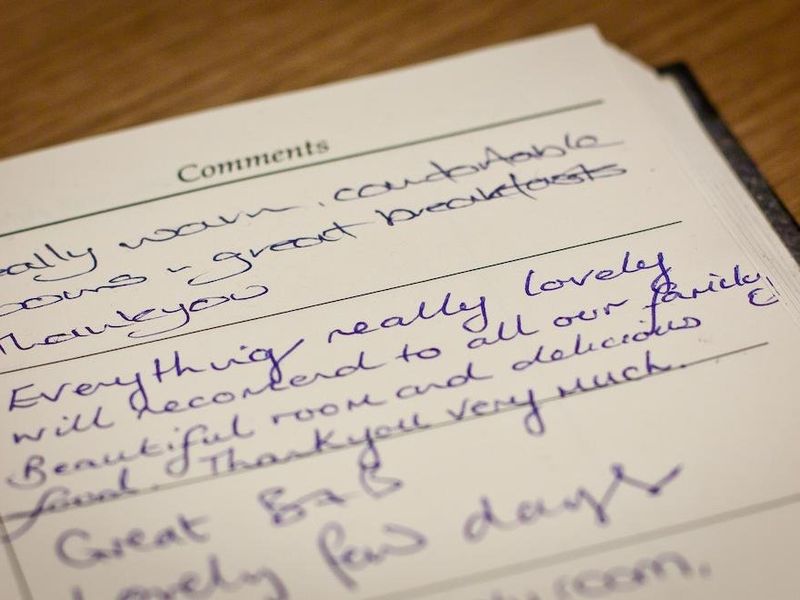 Comments
eally warm, comfortable
ooms - great breakfasts
Thankyou
Everything really lovely
will recomend to all our family
Beautiful room and delicious
food. Thankyou very much.
Great B+B
Lovely few days